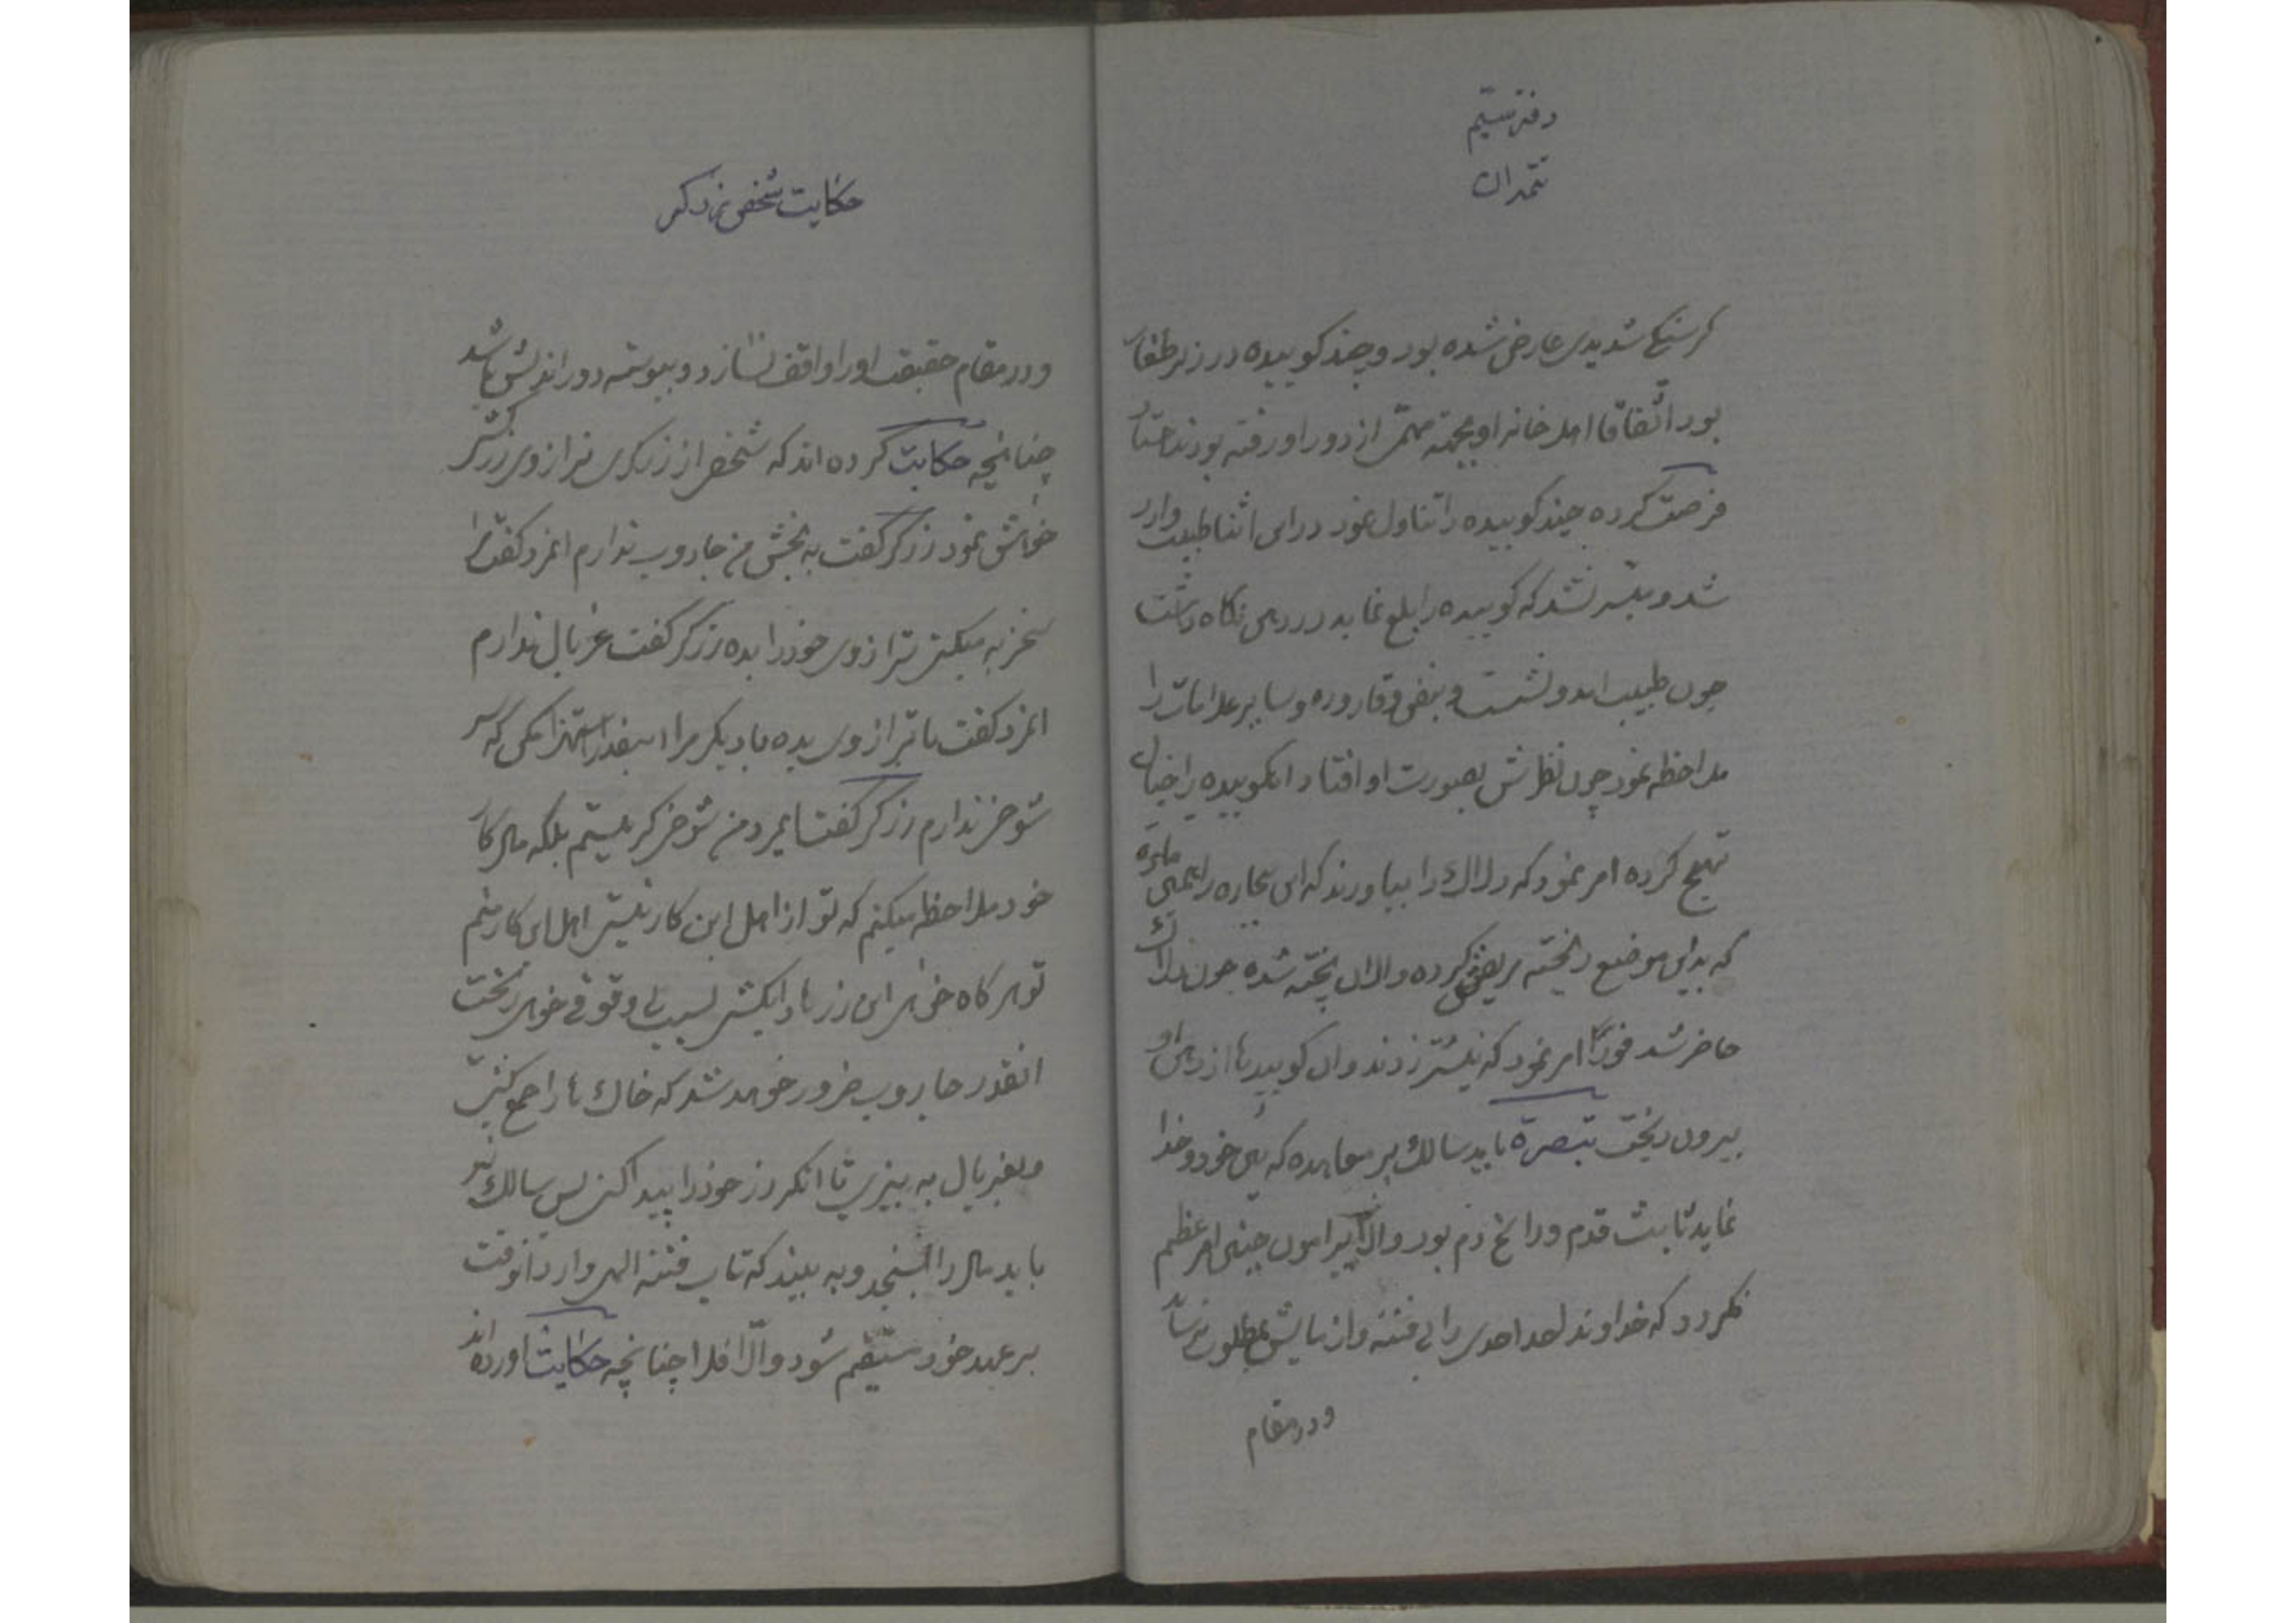 دفتر سیم
تتمه ان
کرسنکی شدیدی عارض شده بود و چند کوبیده در زیر طغار
بود اتّفاقا اهل خانه او بجهته مهمّی از دور او رفته بودند
فرصت کرده چند کوبیده را تناول نمود در این اثنا طبیب وارد
شد و میّسر نشد که کوبیده را بلع نماید در دهن نکاه داشت
چون طبیب امد و نشست و نبض و قاروره و سایر علامات را
ملاحظه نمود چون نظرش بصورت او افتاد انکوبیده را خیال
تهیج کرده امر نمود که دلاک را بیاورند که این بیچاره را
که بداین موضع ریخته مریضش کرده و الان پخته شده چون دلاک
حاضر شد فوراً امر نمود که نیشتر زدند و ان کوبیدها از دهن او
بیرون ریخت تبصرة باید سالک بر معاهده که بین خود و خدا
نماید ثابت قدم و راسخ دم بود و الّا پیرامون چنین امر عظیم
نکردد که خداوند احد احدی را بی فتنه و ازمایش بمطلوب نرساند
و در مقام
حکایت شخصی نزد زرکر
و در مقام حقیقت او را واقف نسازد و پیوسته دور اندیش باشد
چنانچه حکایت کرده اند که شخصی از زرکری ترازوی زرکش
خواهش نمود زرکر کفت به بخش من جاروب ندارم انمرد کفت
سخریه میکنی ترازوی خود را بده زرکر کفت غربال ندارم
انمرد کفت یا ترازوی بده یا دیکر مرا اینقدر استهزا مکن که سر
شوخی ندارم زرکر کفت ایمرد من شوخی کر نیستم بلکه مال کار
خود ملاحظه میکنم که تو از اهل این کار نیستی اهل این کار منم
تو هر کاه خواهی این زرها را بکشی بسبب بی وقوفی خواهی ریخت
انقدر جاروب ضرور خواهد شد که خاک ها را جمع کنی
و بغربال به بیزی تا انکه زر خود را پیدا کنی پس سالک نیز
باید مال را بسنجد و به بیند که تاب فتنه الهی وارد انوقت
بر عهد خود مستقیم شود و الّا فلا چنانچه حکایت اورده اند